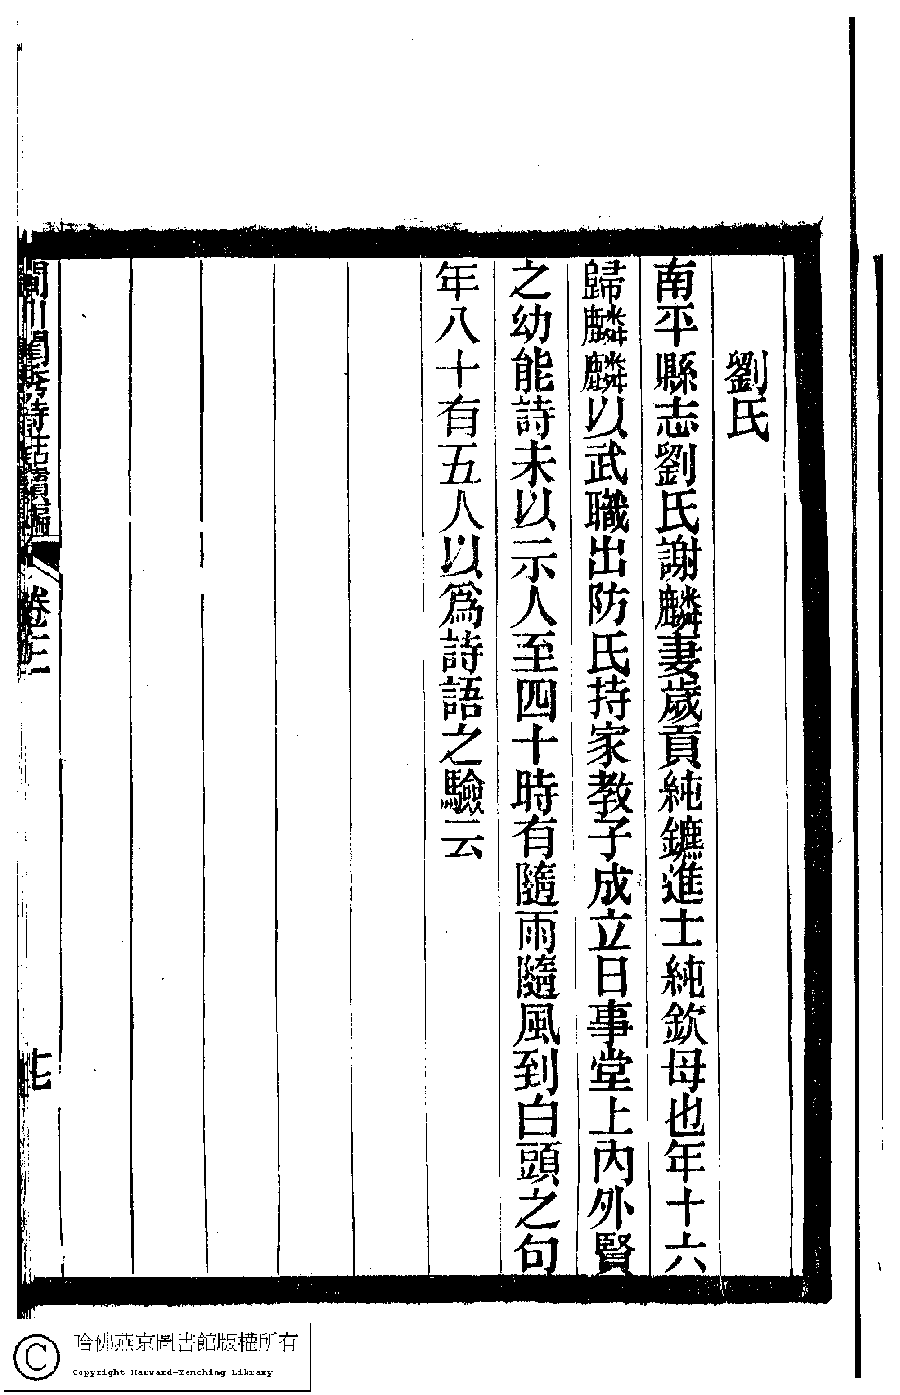 劉氏
南平縣志劉氏謝麟妻歲貢純鑣進士純欽母也年十六
歸麟麟以武職出防氏持家教子成立日事堂上內外賢
之幼能詩未以示人至四十時有隨雨隨風到白頭之句
年八十有五人以爲詩語之驗云
閩川閨秀詩話續編 卷三
哈佛燕京圖書館版權所有
Copyright Harvard-Yenching Library